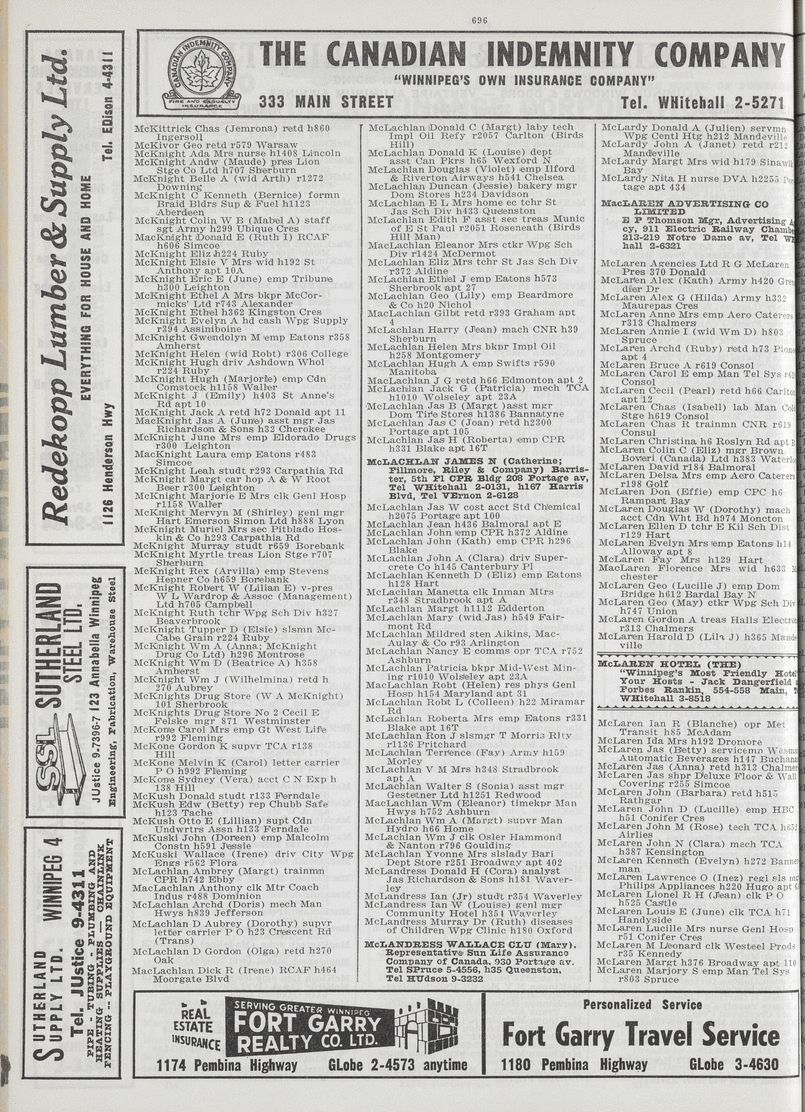 696
Redekopp Lumber & Supply Ltd.
EVERYTHING FOR HOUSE AND HOME
1126 Henderson Hwy
Tel. EDison 4-4311
SSL SUTHERLAND
STEEL LTD.
JUstice 9-7396-7 123 Annabella Winnipeg
Engineering, Fabrication, Warehouse Steel
SUTHERLAND
SUPPLY LTD. WINNIPEG 4
Tel. JUstice 9-4311
PIPE - TUBING - PLUMBING AND
HEATING SUPPLIES - CHAINLINK
FENCING - PLAYGROUND EQUIPMENT
CANADIAN INDEMNITY COMPANY
FIRE AND CASUALTY
INSURANCE
THE CANADIAN INDEMNITY COMPANY
"WINNIPEG'S OWN INSURANCE COMPANY"
333 MAIN STREET Tel. WHitehall 2-5271
McKittrick Chas (Jemrona) retd h860
Ingersoll
McKivor Geo retd r579 Warsaw
McKnight Ada Mrs nurse h1408 Lincoln
McKnight Andw (Maude) pres Lion
Stge Co Ltd h707 Sherburn
McKnight Belle A (wid Arth) r1272
Downing
McKnight C Kenneth (Bernice) formn
Braid Bldrs Sup & Fuel h1123
Aberdeen
McKnight Colin W B (Mabel A) staff
sgt Army h299 Ubique Cres
MacKnight Donald E (Ruth I) RCAF
h606 Simcoe
McKnight Eliz h224 Ruby
McKnight Elsie V Mrs wid h192 St
Anthony apt 10A
McKnight Eric E (June) emp Tribune
h300 Leighton
McKnight Ethel A Mrs bkpr McCor-
micks' Ltd r743 Alexander
McKnight Ethel h362 Kingston Cres
McKnight Evelyn A hd cash Wpg Supply
r394 Assiniboine
McKnight Gwendolyn M emp Eatons r358
Amherst
McKnight Helen (wid Robt) r306 College
McKnight Hugh driv Ashdown Whol
r224 Ruby
McKnight Hugh (Marjorie) emp Cdn
Comstock h1158 Waller
McKnight J (Emily) h403 St Anne's
Rd apt 10
McKnight Jack A retd h72 Donald apt 11
MacKnight Jas A (June) asst mgr Jas
Richardson & Sons h32 Cherokee
McKnight June Mrs emp Eldorado Drugs
r300 Leighton
MacKnight Laura emp Eatons r483
Simcoe
McKnight Leah studt r293 Carpathia Rd
McKnight Margt car hop A & W Root
Beer r300 Leighton
McKnight Marjorie E Mrs clk Genl Hosp
r1158 Waller
McKnight Mervyn M (Shirley) genl mgr
Hart Emerson Simon Ltd h888 Lyon
McKnight Muriel Mrs sec Pitblado Hos-
kin & Co h293 Carpathia Rd
McKnight Murray studt r659 Borebank
McKnight Myrtle treas Lion Stge r707
Sherburn
McKnight Rex (Arvilla) emp Stevens
Hepner Co h659 Borebank
McKnight Robert W (Lilian E) v-pres
W L Wardrop & Assoc (Management)
Ltd h705 Campbell
McKnight Ruth tchr Wpg Sch Div h327
Beaverbrook
McKnight Tupper D (Elsie) slsmn Mc-
Cabe Grain r224 Ruby
McKnight Wm A (Anna; McKnight
Drug Co Ltd) h296 Montrose
McKnight Wm D (Beatrice A) h358
Amherst
McKnight Wm J (Wilhelmina) retd h
270 Aubrey
McKnights Drug Store (W A McKnight)
101 Sherbrook
McKnights Drug Store No 2 Cecil E
Felske mgr 871 Westminster
McKone Carol Mrs emp Gt West Life
r992 Fleming
McKone Gordon K supvr TCA r138
Hill
McKone Melvin K (Carol) letter carrier
P O h992 Fleming
McKone Sydney (Vera) acct C N Exp h
138 Hill
McKush Donald studt r133 Ferndale
McKush Edw (Betty) rep Chubb Safe
h123 Tache
McKush Otto E (Lillian) supt Cdn
Undwrtrs Assn h133 Ferndale
McKuski John (Doreen) emp Malcolm
Constn h591 Jessie
McKuski Wallace (Irene) driv City Wpg
Engs r562 Flora
McLachlan Ambrey (Margt) trainmn
CPR h742 Ebby
MacLachlan Anthony clk Mtr Coach
Indus r488 Dominion
McLachlan Archd (Doris) mech Man
Hwys h839 Jefferson
McLachlan D Aubrey (Dorothy) supvr
letter carrier P O h23 Crescent Rd
(Trans)
McLachlan D Gordon (Olga) retd h270
Oak
MacLachlan Dick R (Irene) RCAF h464
Moorgate Blvd
McLachlan Donald C (Margt) laby tech
Impl Oil Refy r2057 Carlton (Birds
Hill)
McLachlan Donald K (Louise) dept
asst Can Pkrs h65 Wexford N
McLachlan Douglas (Violet) emp Ilford
& Riverton Airways h541 Chelsea
McLachlan Duncan (Jessie) bakery mgr
Dom Stores h234 Davidson
McLachlan E L Mrs home ec tchr St
Jas Sch Div h433 Queenston
McLachlan Edith F asst sec treas Munic
of E St Paul r2051 Roseneath (Birds
Hill Man)
MacLachlan Eleanor Mrs ctkr Wpg Sch
Div r1424 McDermot
McLachlan Eliz Mrs tchr St Jas Sch Div
r372 Aldine
McLachlan Ethel J emp Eatons h573
Sherbrook apt 27
McLachlan Geo (Lily) emp Beardmore
& Co h20 Nichol
MacLachlan Gilbt retd r393 Graham apt
4
McLachlan Harry (Jean) mach CNR h39
Sherburn
McLachlan Helen Mrs bkpr Impl Oil
h258 Montgomery
McLachlan Hugh A emp Swifts r590
Manitoba
MacLachlan J G retd h66 Edmonton apt 2
McLachlan Jack G (Patricia) mech TCA
h1010 Wolseley apt 23A
McLachlan Jas B (Margt) asst mgr
Dom Tire Stores h1386 Bannatyne
McLachlan Jas C (Joan) retd h2300
Portage apt 105
McLachlan Jas H (Roberta) emp CPR
h331 Blake apt 16T
McLACHLAN JAMES N (Catherine;
Fillmore, Riley & Company) Barris-
ter, 5th Fl CPR Bldg 208 Portage av,
Tel WHitehall 2-0131, h167 Harris
Blvd, Tel VErnon 2-6128
McLachlan Jas W cost acct Std Chemical
h2075 Portage apt 100
McLachlan Jean h436 Balmoral apt E
McLachlan John emp CPR h372 Aldine
McLachlan John (Kath) emp CPR h296
Blake
McLachlan John A (Clara) driv Super-
crete Co h145 Canterbury Pl
McLachlan Kenneth D (Eliz) emp Eatons
h128 Hart
McLachlan Manetta clk Inman Mtrs
r348 Stradbrook apt A
McLachlan Margt h1112 Edderton
McLachlan Mary (wid Jas) h549 Fair-
mont Rd
McLachlan Mildred sten Aikins, Mac-
Aulay & Co r93 Arlington
McLachlan Nancy E comns opr TCA r752
Ashburn
McLachlan Patricia bkpr Mid-West Min-
ing r1010 Wolseley apt 23A
MacLachlan Robt (Helen) res phys Genl
Hosp h154 Mayland apt 31
McLachlan Robt L (Colleen) h22 Miramar
Rd
McLachlan Roberta Mrs emp Eatons r331
Blake apt 16T
McLachlan Ron J slsmgr T Morris Rlty
r1136 Pritchard
McLachlan Terrence (Fay) Army h159
Morley
McLachlan V M Mrs h348 Stradbrook
apt A
McLachlan Walter S (Sonia) asst mgr
Gestetner Ltd h1251 Redwood
MacLachlan Wm (Eleanor) timekpr Man
Hwys h752 Ashburn
McLachlan Wm A (Margt) supvr Man
Hydro h66 Home
McLachlan Wm J clk Osler Hammond
& Nanton r796 Goulding
McLachlan Yvonne Mrs slslady Bari
Dept Store r251 Broadway apt 402
McLandress Donald H (Cora) analyst
Jas Richardson & Sons h181 Waver-
ley
McLandress Ian (Jr) studt r354 Waverley
McLandress Ian W (Louise) genl mgr
Community Hotel h354 Waverley
McLandress Murray Dr (Ruth) diseases
of Children Wpg Clinic h180 Oxford
McLANDRESS WALLACE CLU (Mary),
Representative Sun Life Assurance
Company of Canada, 930 Portage av.
Tel SPruce 5-4556, h35 Queenston,
Tel HUdson 9-3232
McLardy Donald A (Julien) servmn
Wpg Centl Htg h212 Mandeville
McLardy John A (Janet) retd r212
Mandeville
McLardy Margt Mrs wid h179
Bay
McLardy Nita H nurse DVA h2255
tage apt 434
MacLAREN ADVERTISING CO
LIMITED
E P Thomson Mgr, Advertising
cy, 911 Electric Railway
213-219 Notre Dame av, Tel
hall 2-6321
McLaren Agencies Ltd R G McLaren
Pres 370 Donald
McLaren Alex (Kath) Army h420
dier Dr
McLaren Alex G (Hilda) Army h332
Maurepas Cres
McLaren Anne Mrs emp Aero Caterers
r313 Chalmers
McLaren Annie I (wid Wm D) h803
Spruce
McLaren Archd (Ruby) retd h73
apt 4
McLaren Bruce A r619 Consol
McLaren Carol E emp Man Tel Sys
Consol
McLaren Cecil (Pearl) retd h66
apt 12
McLaren Chas (Isabell) lab Man
Stge h619 Consol
McLaren Chas R trainmn CNR r619
Consul
McLaren Christina h6 Roslyn Rd apt
McLaren Colin C (Eliz) mgr Brown
Boveri (Canada) Ltd h383
McLaren David r184 Balmoral
McLaren Delsa Mrs emp Aero Caterers
r198 Golf
McLaren Don (Effie) emp CPC h6
Rampart Bay
McLaren Douglas W (Dorothy) mach
acct Cdn Wht Bd h974 Moncton
McLaren Ellen D tchr E Kil Sch Dist
r129 Hart
McLaren Evelyn Mrs emp Eatons h14
Alloway apt 8
McLaren Fay Mrs h129 Hart
MacLaren Florence Mrs wid h633
chester
McLaren Geo (Lucille J) emp Dom
Bridge h612 Bardal Bay N
McLaren Geo (May) ctkr Wpg Sch Div
h747 Union
McLaren Gordon A treas Halls
r313 Chalmers
McLaren Harold D (Lila J) h365
ville
McLAREN HOTEL (THE)
"Winnipeg's Most Friendly
Your Hosts - Jack Dangerfield
Forbes Rankin, 554-558 Main,
WHitehall 3-8518
McLaren Ian R (Blanche) opr Met
Transit h85 McAdam
McLaren Ida Mrs h192 Dromore
McLaren Jas (Betty) servicemn
Automatic Beverages h147
McLaren Jas (Anna) retd h313
McLaren Jas shpr Deluxe Floor & Wall
Covering r255 Simcoe
McLaren John (Barbara) retd h515
Rathgar
McLaren John D (Lucille) emp HBC
h51 Conifer Cres
McLaren John M (Rose) tech TCA
Airlies
McLaren John N (Clara) mech TCA
h387 Kensington
McLaren Kenneth (Evelyn) h272
man
McLaren Lawrence O (Inez) regl sls
Philips Appliances h220 Hugo apt
McLaren Lionel R H (Jean) clk P O
h525 Castle
McLaren Louis E (June) clk TCA h71
Handyside
McLaren Lucille Mrs nurse Genl Hosp
r51 Conifer Cres
McLaren M Leonard clk Westeel Prods
r35 Kennedy
McLaren Margt h376 Broadway apt 110
McLaren Marjory S emp Man Tel Sys
r803 Spruce
REAL
ESTATE
INSURANCE
SERVING GREATER WINNIPEG
FORT GARRY
REALTY CO. LTD.
1174 Pembina Highway GLobe 2-4573 anytime
Personalized Service
Fort Garry Travel Service
1180 Pembina Highway GLobe 3-4630